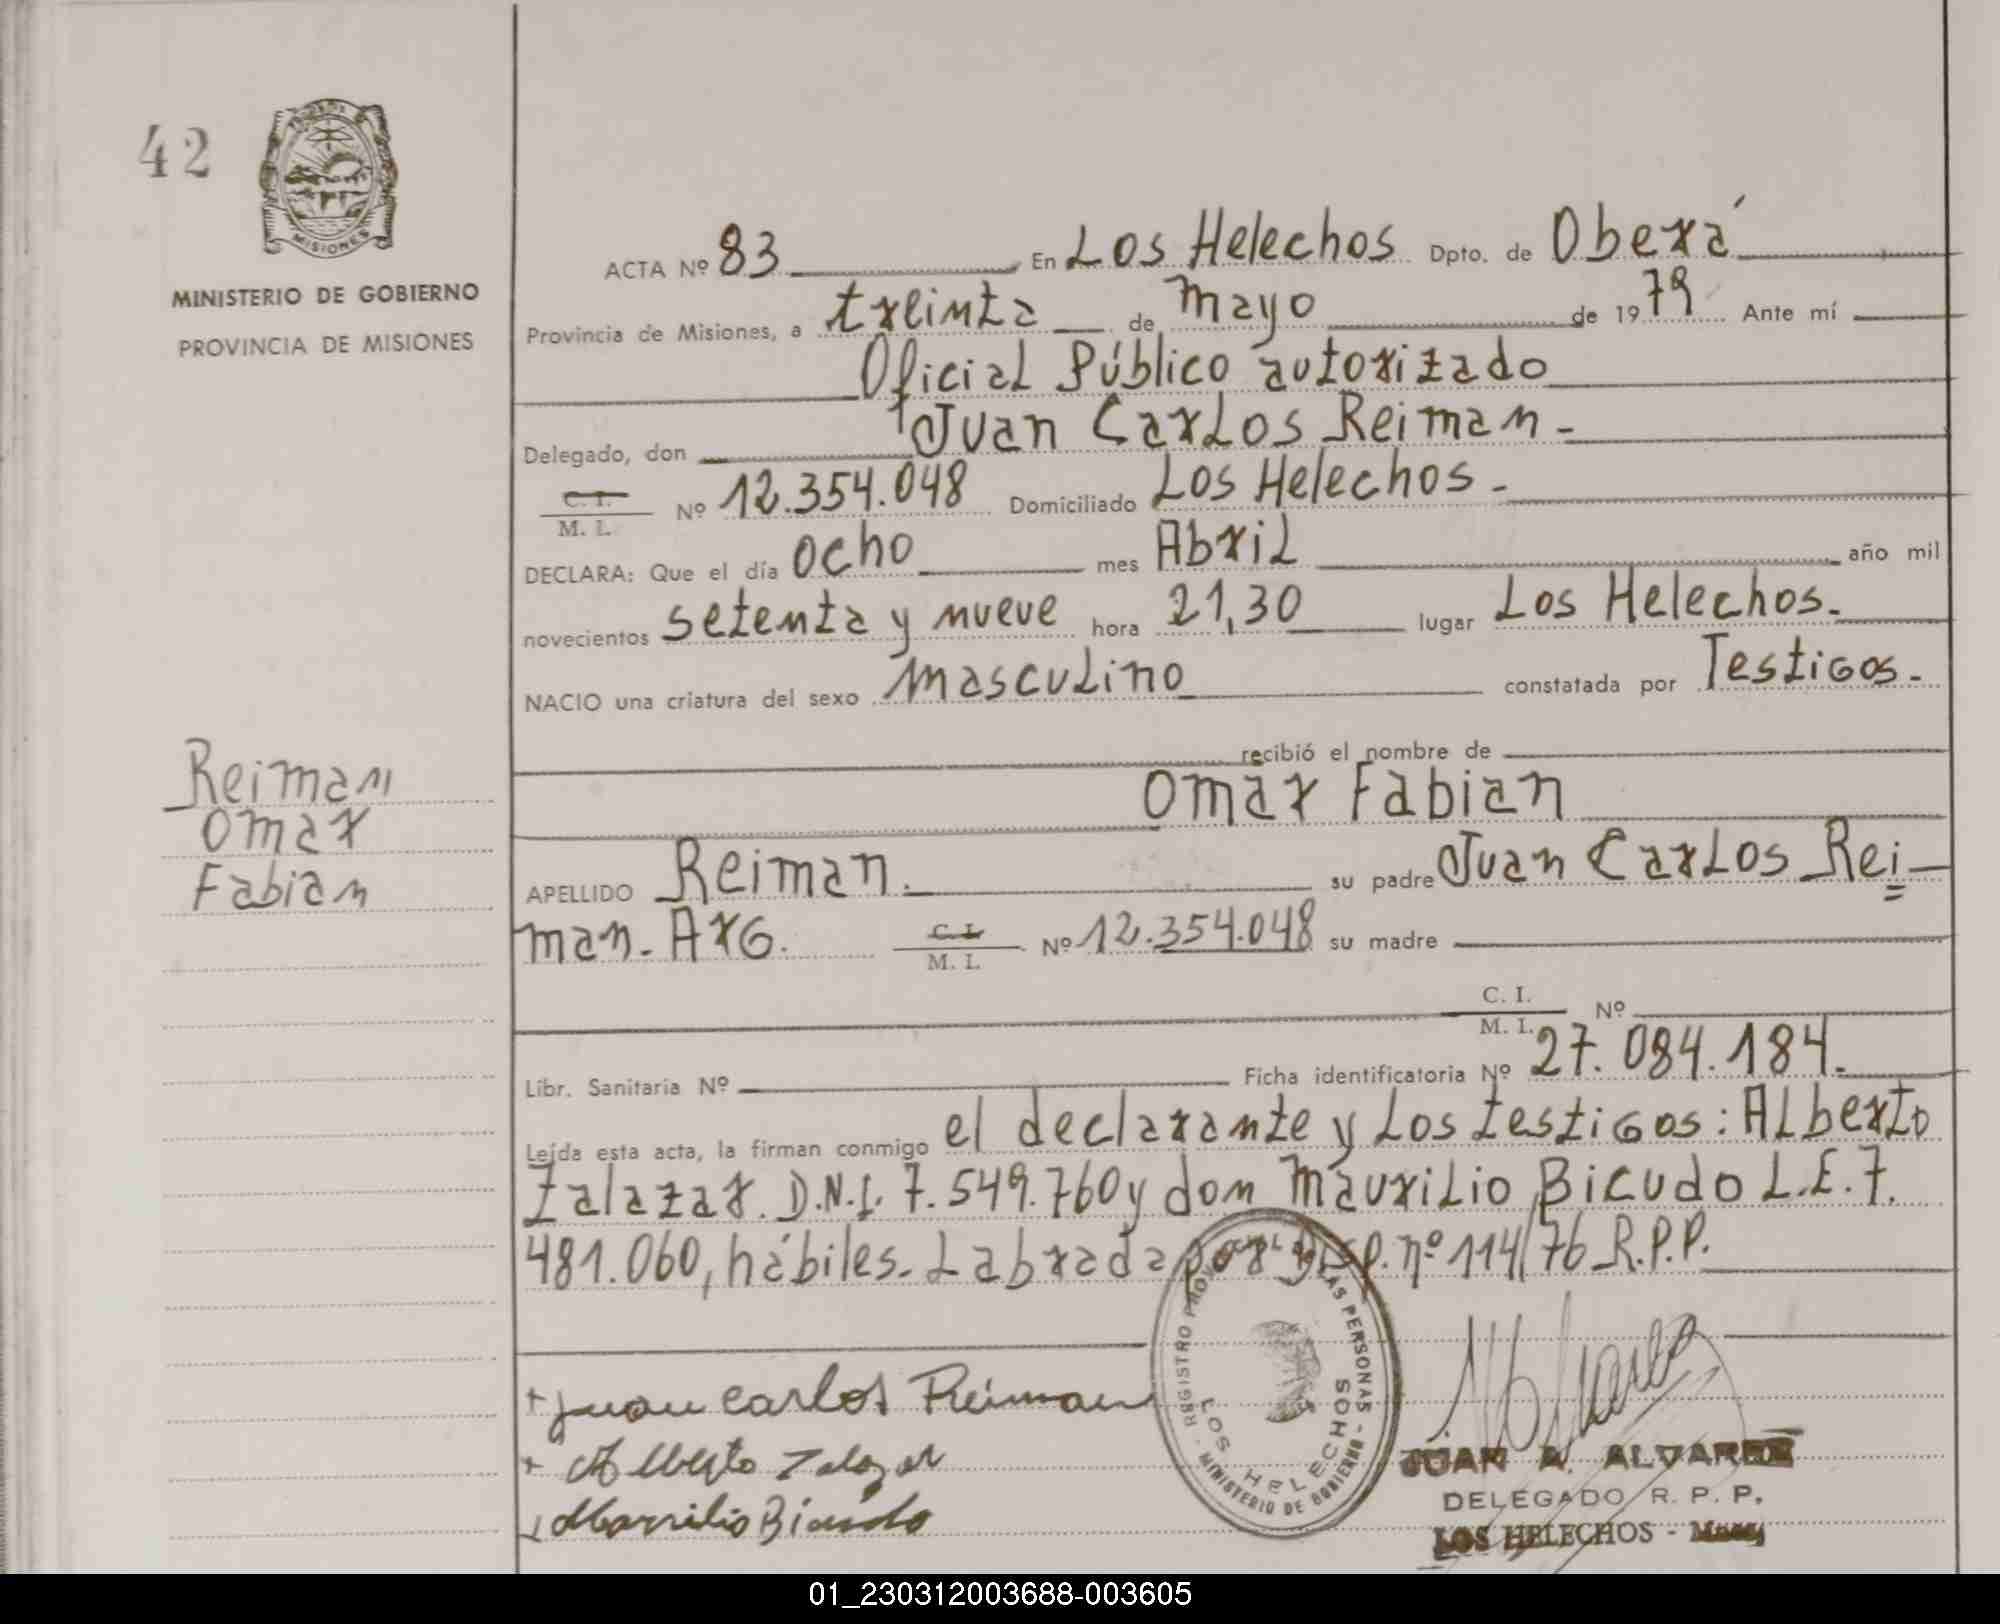 42
MISIONES
MINISTERIO DE GOBIERNO
PROVINCIA DE MISIONES
Reiman
Omar
Fabian
ACTA Nº 83 En Los Helechos Dpto. de Oberá
Provincia de Misiones, a treinta de Mayo de 1979 Ante mí
Oficial Público autorizado
Delegado, don Juan Carlos Reiman -
C. I.
M. I. Nº 12.354.048 Domiciliado Los Helechos -
DECLARA: Que el día ocho mes Abril año mil
novecientos setenta y nueve hora 21,30 lugar Los Helechos.
NACIO una criatura del sexo masculino constatada por Testigos.
recibió el nombre de
Omar Fabian
APELLIDO Reiman. su padre Juan Carlos Rei
man. Arg. C. I.
M. I. Nº 12.354.048 su madre
C. I.
M. I. Nº
Libr. Sanitaria Nº Ficha identificatoria Nº 27.084.184.
Leída esta acta, la firman conmigo el declarante y Los testigos: Alberto
Zalazar. D.N.I. 7.549.760 y don Maurilio Bicudo L.E. 7.
481.060, hábiles. Labrada por Disp. nº 114/76 R.P.P.
+ Juan Carlos Reiman
+ Alberto Zalazar
Maurilio Bicudo
REGISTRO PROVINCIAL DE LAS PERSONAS
LOS HELECHOS
- MINISTERIO DE GOBIERNO -
JUAN A. ALVAREZ
DELEGADO R. P. P.
LOS HELECHOS -
01_230312003688-003605